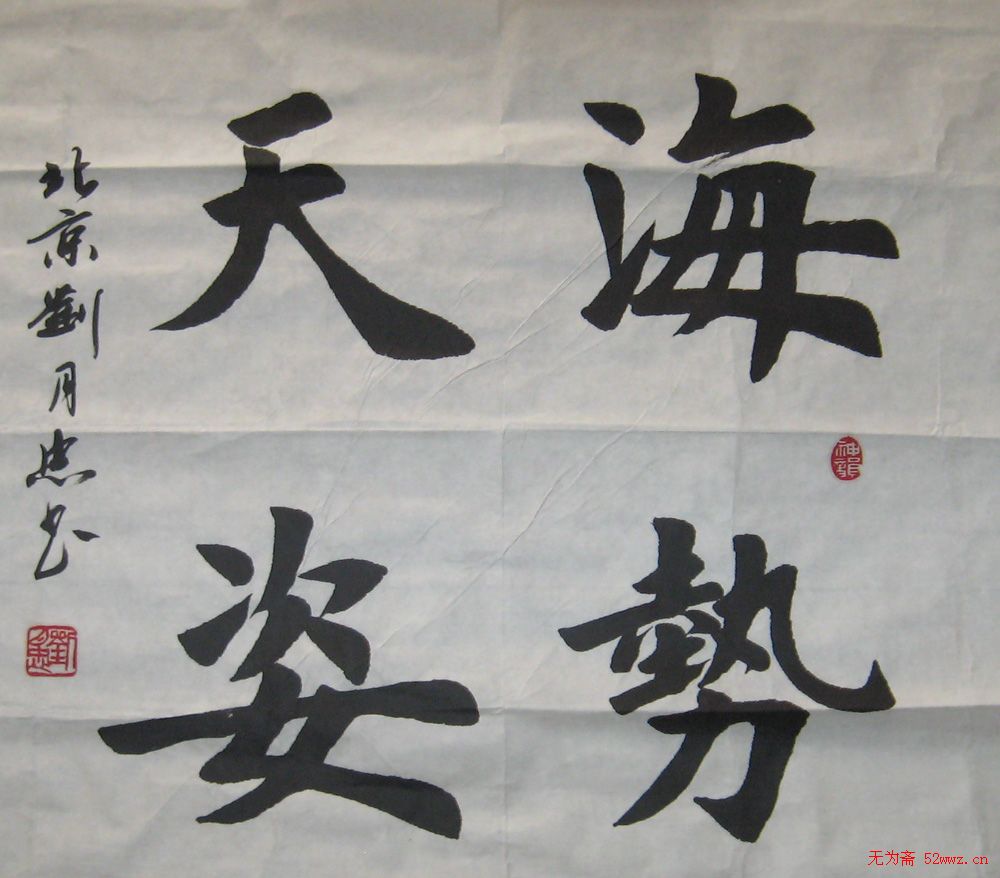 海勢
天姿
北京劉月忠书
无为斋 52wwz.cn